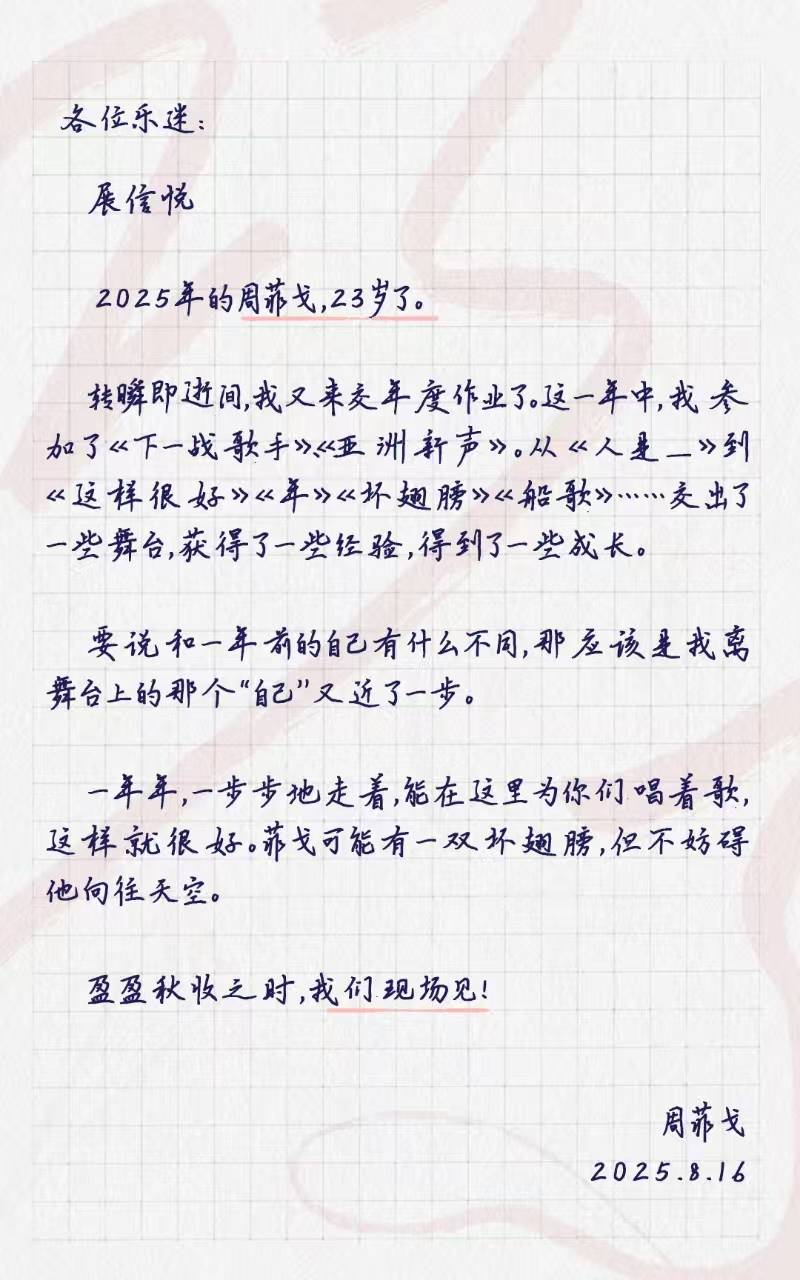 各位乐迷：
展信悦
2025年的周菲戈，23岁了。
转瞬即逝间，我又来交年度作业了。这一年中，我参
加了《下一战歌手》、《亚洲新声》。从《人是_》到
《这样很好》《年》《坏翅膀》《船歌》……交出了
一些舞台，获得了一些经验，得到了一些成长。
要说和一年前的自己有什么不同，那应该是我离
舞台上的那个“自己”又近了一步。
一年年，一步步地走着，能在这里为你们唱着歌，
这样就很好。菲戈可能有一双坏翅膀，但不妨碍
他向往天空。
盈盈秋收之时，我们现场见！
周菲戈
2025.8.16